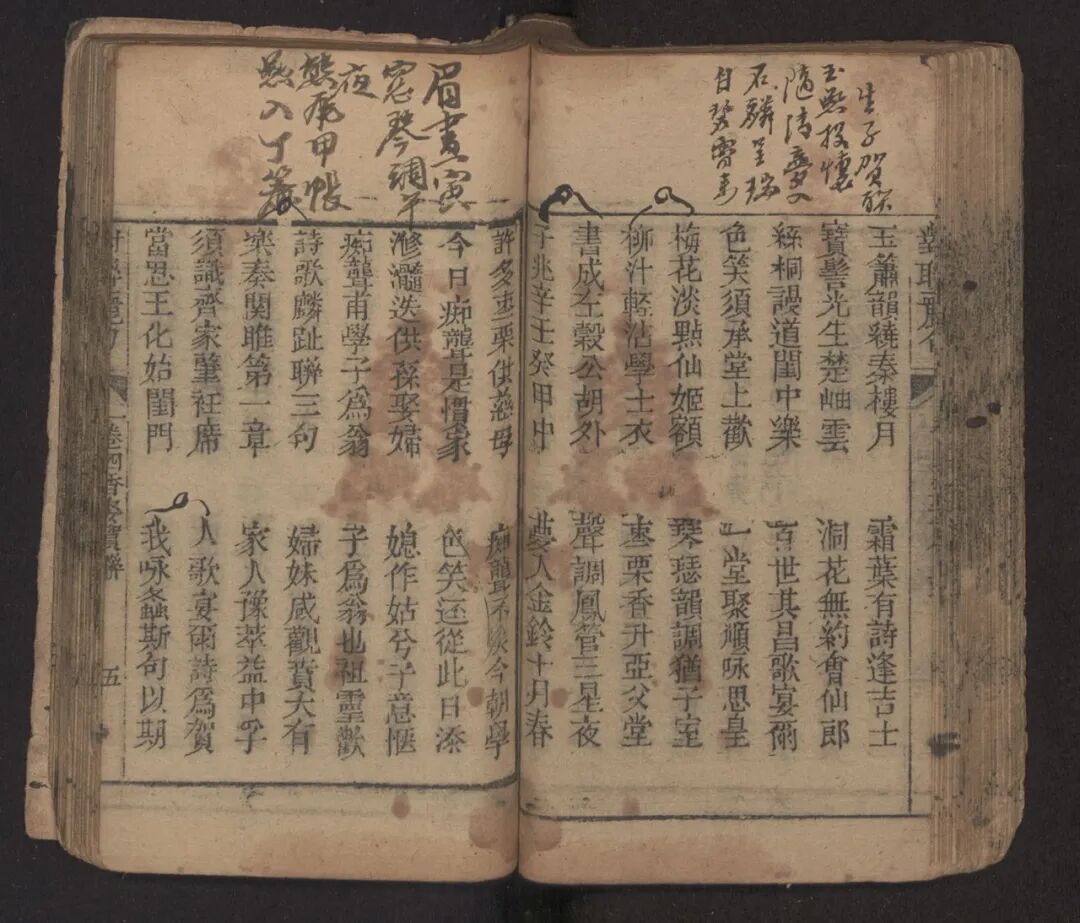 生子賀聯
玉燕投懷
隨清夢入
石麟呈瑞
自碧霄來
對聯
玉簫韻繞秦樓月 霜葉有詩逢吉士
寶髻光生楚岫雲 洞花無約會仙郎
絲桐謾道閨中樂 百世其昌歌宴爾
色笑須承堂上歡 一堂聚順咏思皇
梅花淡點仙姬額 琴瑟韻調猶子室
柳汁輕沾學士衣 棗栗香升亞父堂
書成左穀公胡外 聲調鳳管三星夜
子兆辛壬癸甲中 夢入金鈴十月春
眉畫寅
窓琴調午
夜
尾甲帳
入丁簾
許多棗栗供慈母 痴聾不必今朝學
今日痴聾是慣家 色笑还從此日添
滫瀡迭供孫娶婦 媳作姑兮子意愜
痴聾甫學子爲翁 子爲翁也祖靈歡
詩歌麟趾聯三句 婦妹咸觀賁大有
樂奏関雎第一章 家人豫萃益中孚
須識齊家肇衽席 人歌宴爾詩爲賀
當思王化始閨門 我咏螽斯句以期
五